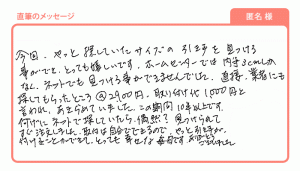 直筆のメッセージ
匿名 様
今回、やっと探していたサイズの引き手を見つける
事ができ、とっても嬉しいです。ホームセンターでは 内寸3cmしか
なし。ネットでも見つける事ができませんでした。直接、業者にも
探してもらったところ @2,900円、取り付け代 1,000円と
言われ、あきらめていました。この期間 10年以上です。
何げに ネットで探していたら、偶然？見つけられて
すぐ注文しました。取付は自分でできるので、やっと引き手が
付けることができて、とっても幸せな毎日です